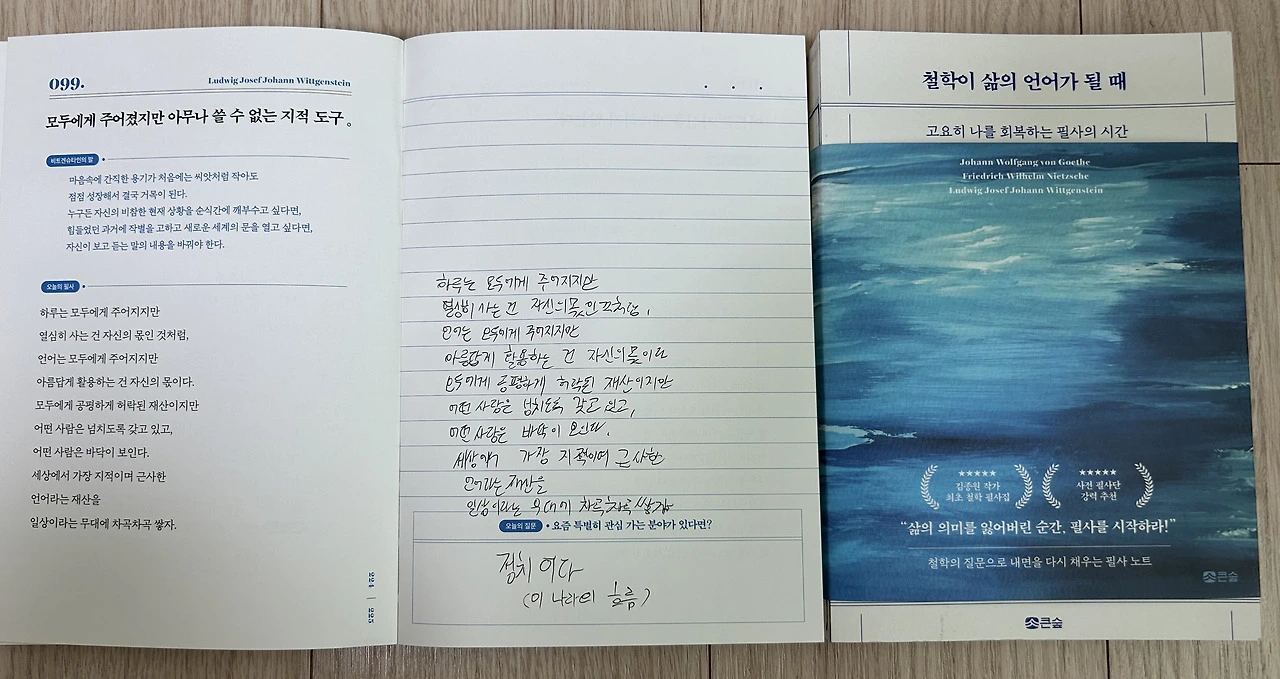 099.
Ludwig Josef Johann Wittgenstein
모두에게 주어졌지만 아무나 쓸 수 없는 지적 도구。
비트겐슈타인의 말
마음속에 간직한 용기가 처음에는 씨앗처럼 작아도
점점 성장해서 결국 거목이 된다.
누구든 자신의 비참한 현재 상황을 순식간에 깨부수고 싶다면,
힘들었던 과거에 작별을 고하고 새로운 세계의 문을 열고 싶다면,
자신이 보고 듣는 말의 내용을 바꿔야 한다.
오늘의 필사
하루는 모두에게 주어지지만
열심히 사는 건 자신의 몫인 것처럼,
언어는 모두에게 주어지지만
아름답게 활용하는 건 자신의 몫이다.
모두에게 공평하게 허락된 재산이지만
어떤 사람은 넘치도록 갖고 있고,
어떤 사람은 바닥이 보인다.
세상에서 가장 지적이며 근사한
언어라는 재산을
일상이라는 무대에 차곡차곡 쌓자.
224 | 225
하루는 모두에게 주어지지만
열심히 사는 건 자신의 몫인 것처럼,
언어는 모두에게 주어지지만
아름답게 활용하는 건 자신의 몫이다
모두에게 공평하게 허락된 재산이지만
어떤 사람은 넘치도록 갖고 있고,
어떤 사람은 바닥이 보인다.
세상에서 가장 지적이며 근사한
언어라는 재산을
일상이라는 무대에 차곡차곡 쌓자
오늘의 질문 • 요즘 특별히 관심 가는 분야가 있다면?
정치 이다
(이 나라의 흐름)
철학이 삶의 언어가 될 때
고요히 나를 회복하는 필사의 시간
Johann Wolfgang von Goethe
Friedrich Wilhelm Nietzsche
Ludwig Josef Johann Wittgenstein
★★★★★
김종원 작가
최초 철학 필사집
★★★★★
사전 필사단
강력 추천
“삶의 의미를 잃어버린 순간, 필사를 시작하라!”
철학의 질문으로 내면을 다시 채우는 필사 노트
큰숲
큰숲